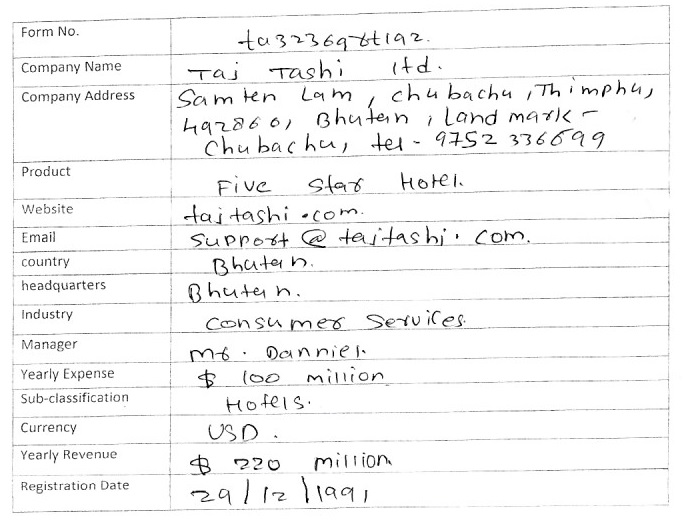 Form No. ta32369rt192.
Company Name Taj Tashi ltd.
Company Address Samten Lam, chubachu, Thimphu,
492860, Bhutan, Land mark -
Chubachu, tel - 9752 336699
Product Five Star Hotel.
Website tajtashi.com.
Email support@tajtashi.com.
country Bhutan.
headquarters Bhutan.
Industry Consumer Services.
Manager Mr. Danniel.
Yearly Expense $ 100 million
Sub-classification Hotels.
Currency USD.
Yearly Revenue $ 220 million
Registration Date 29/12/1991